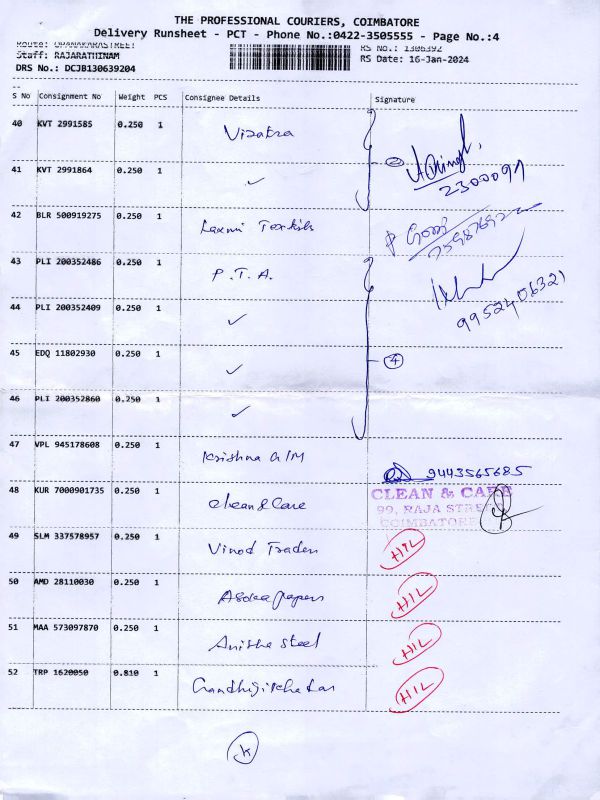 THE PROFESSIONAL COURIERS, COIMBATORE
Delivery Runsheet - PCT - Phone No.:0422-3505555 - Page No.:4
Route: OPANAKARASTREET RS No.: 1306392
Staff: RAJARATHINAM RS Date: 16-Jan-2024
DRS No.: DCJB130639204
S No Consignment No Weight PCS Consignee Details Signature
40 KVT 2991585 0.250 1
41 KVT 2991864 0.250 1 ✓ 2
2300097
42 BLR 500919275 0.250 1 Laxmi
43 PLI 200352486 0.250 1 P.T.A.
44 PLI 200352409 0.250 1 ✓
9952406321
45 EDQ 11802930 0.250 1 ✓ 4
46 PLI 200352860 0.250 1 ✓
47 VPL 945178608 0.250 1 Krishna 9443565685
48 KUR 7000901735 0.250 1 Clean & Care
CLEAN & CARE
99, RAJA STREET
COIMBATORE
49 SLM 337578957 0.250 1 Vinod Traders HIL
50 AMD 28110030 0.250 1 HIL
51 MAA 573097870 0.250 1 Anitha Steel HIL
52 TRP 1620050 0.810 1 HIL
K